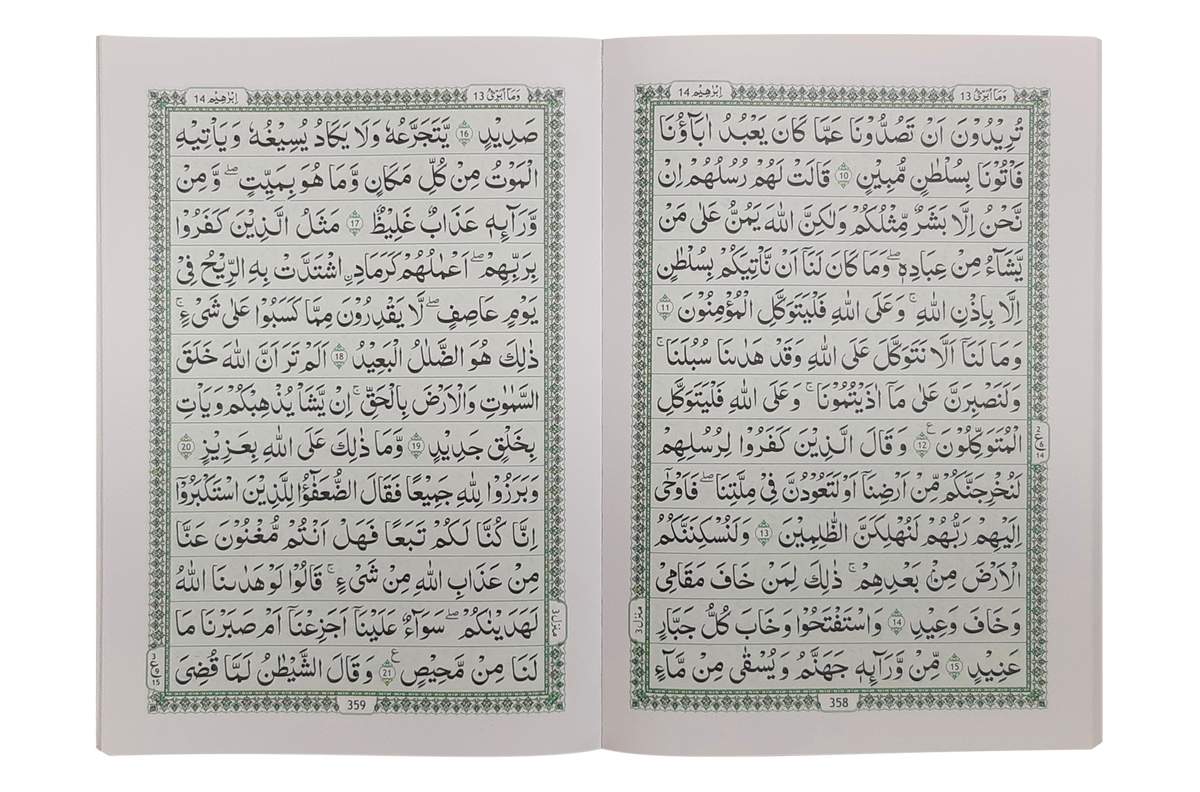 وَمَآ اُبَرِّئُ 13
اِبْرٰهِيْم 14
تُرِيْدُوْنَ اَنْ تَصُدُّوْنَا عَمَّا كَانَ يَعْبُدُ اٰبَآؤُنَا
فَاْتُوْنَا بِسُلْطٰنٍ مُّبِيْنٍ 10 قَالَتْ لَهُمْ رُسُلُهُمْ اِنْ
نَّحْنُ اِلَّا بَشَرٌ مِّثْلُكُمْ وَلٰكِنَّ اللّٰهَ يَمُنُّ عَلٰى مَنْ
يَّشَآءُ مِنْ عِبَادِهٖ ؕ وَمَا كَانَ لَنَآ اَنْ نَّاْتِيَكُمْ بِسُلْطٰنٍ
اِلَّا بِاِذْنِ اللّٰهِ ۚ وَعَلَى اللّٰهِ فَلْيَتَوَكَّلِ الْمُؤْمِنُوْنَ 11
وَمَا لَنَآ اَلَّا نَتَوَكَّلَ عَلَى اللّٰهِ وَقَدْ هَدٰىنَا سُبُلَنَا ۚ
وَلَنَصْبِرَنَّ عَلٰى مَآ اٰذَيْتُمُوْنَا ۚ وَعَلَى اللّٰهِ فَلْيَتَوَكَّلِ
الْمُتَوَكِّلُوْنَ 12 ع وَقَالَ الَّذِيْنَ كَفَرُوْا لِرُسُلِهِمْ
2 ع 6 14
لَنُخْرِجَنَّكُمْ مِّنْ اَرْضِنَآ اَوْ لَتَعُوْدُنَّ فِيْ مِلَّتِنَا ۖ فَاَوْحٰٓى
اِلَيْهِمْ رَبُّهُمْ لَنُهْلِكَنَّ الظّٰلِمِيْنَ 13 وَلَنُسْكِنَنَّكُمُ
الْاَرْضَ مِنْۢ بَعْدِهِمْ ۚ ذٰلِكَ لِمَنْ خَافَ مَقَامِيْ
وَخَافَ وَعِيْدِ 14 وَاسْتَفْتَحُوْا وَخَابَ كُلُّ جَبَّارٍ
عَنِيْدٍ 15 مِّنْ وَّرَآئِهٖ جَهَنَّمُ وَيُسْقٰى مِنْ مَّآءٍ
منزل 3
358
وَمَآ اُبَرِّئُ 13
اِبْرٰهِيْم 14
صَدِيْدٍ 16 يَّتَجَرَّعُهٗ وَلَا يَكَادُ يُسِيْغُهٗ وَيَاْتِيْهِ
الْمَوْتُ مِنْ كُلِّ مَكَانٍ وَّمَا هُوَ بِمَيِّتٍ ۖ وَّمِنْ
وَّرَآئِهٖ عَذَابٌ غَلِيْظٌ 17 مَثَلُ الَّذِيْنَ كَفَرُوْا
بِرَبِّهِمْ ۖ اَعْمٰلُهُمْ كَرَمَادِ ۨ اشْتَدَّتْ بِهِ الرِّيْحُ فِيْ
يَوْمٍ عَاصِفٍ ۖ لَّا يَقْدِرُوْنَ مِمَّا كَسَبُوْا عَلٰى شَيْءٍ ۚ
ذٰلِكَ هُوَ الضَّلٰلُ الْبَعِيْدُ 18 اَلَمْ تَرَ اَنَّ اللّٰهَ خَلَقَ
السَّمٰوٰتِ وَالْاَرْضَ بِالْحَقِّ ۚ اِنْ يَّشَاْ يُذْهِبْكُمْ وَيَاْتِ
بِخَلْقٍ جَدِيْدٍ 19 وَّمَا ذٰلِكَ عَلَى اللّٰهِ بِعَزِيْزٍ 20
وَبَرَزُوْا لِلّٰهِ جَمِيْعًا فَقَالَ الضُّعَفٰٓؤُا لِلَّذِيْنَ اسْتَكْبَرُوْٓا
اِنَّا كُنَّا لَكُمْ تَبَعًا فَهَلْ اَنْتُمْ مُّغْنُوْنَ عَنَّا
مِنْ عَذَابِ اللّٰهِ مِنْ شَيْءٍ ۚ قَالُوْا لَوْ هَدٰىنَا اللّٰهُ
لَهَدَيْنٰكُمْ ۖ سَوَآءٌ عَلَيْنَآ اَجَزِعْنَآ اَمْ صَبَرْنَا مَا
لَنَا مِنْ مَّحِيْصٍ 21 ع وَقَالَ الشَّيْطٰنُ لَمَّا قُضِيَ
منزل 3
3 ع 9 15
359